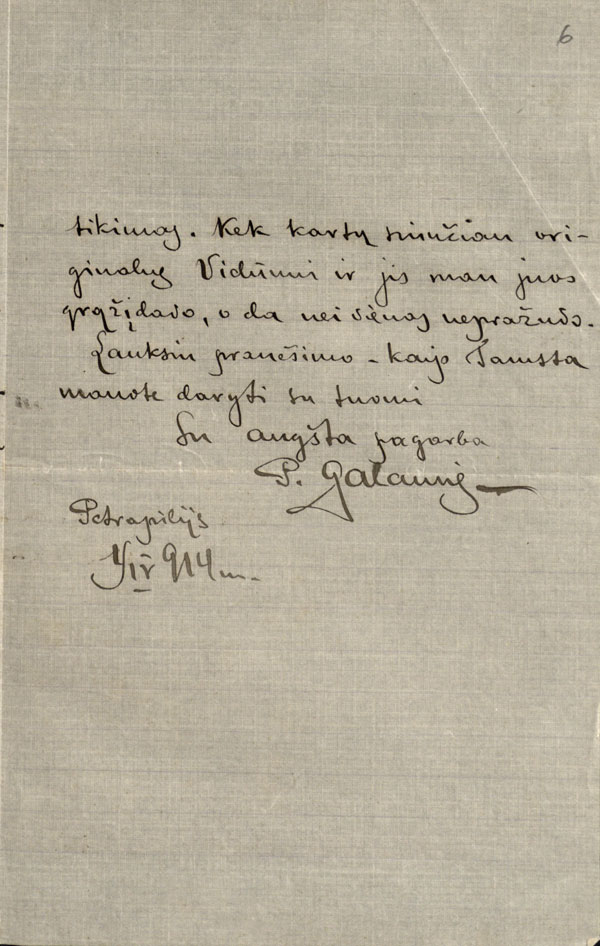 6
tikimas. Kek kartų siunčiau ori-
ginalus Vidūnui ir jis man juos
grąžįdavo, o da nei vienas nepražudo.
Lauksiu pranešimo - kąjo Tamsta
manote daryti su tuomi
Su augšta pagarba
P. Galaunis
Petrapilįjs
1/IV 914 m.